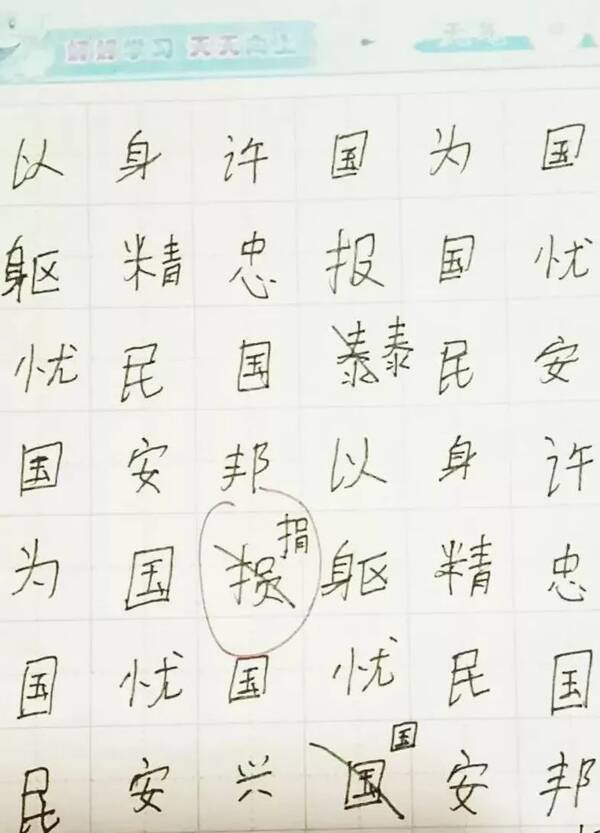 好好学习 天天向上
以身许国为国
躯精忠报国忧
忧民国泰民安
国安邦以身许
为国捐躯精忠
国忧国忧民国
民安兴国安邦